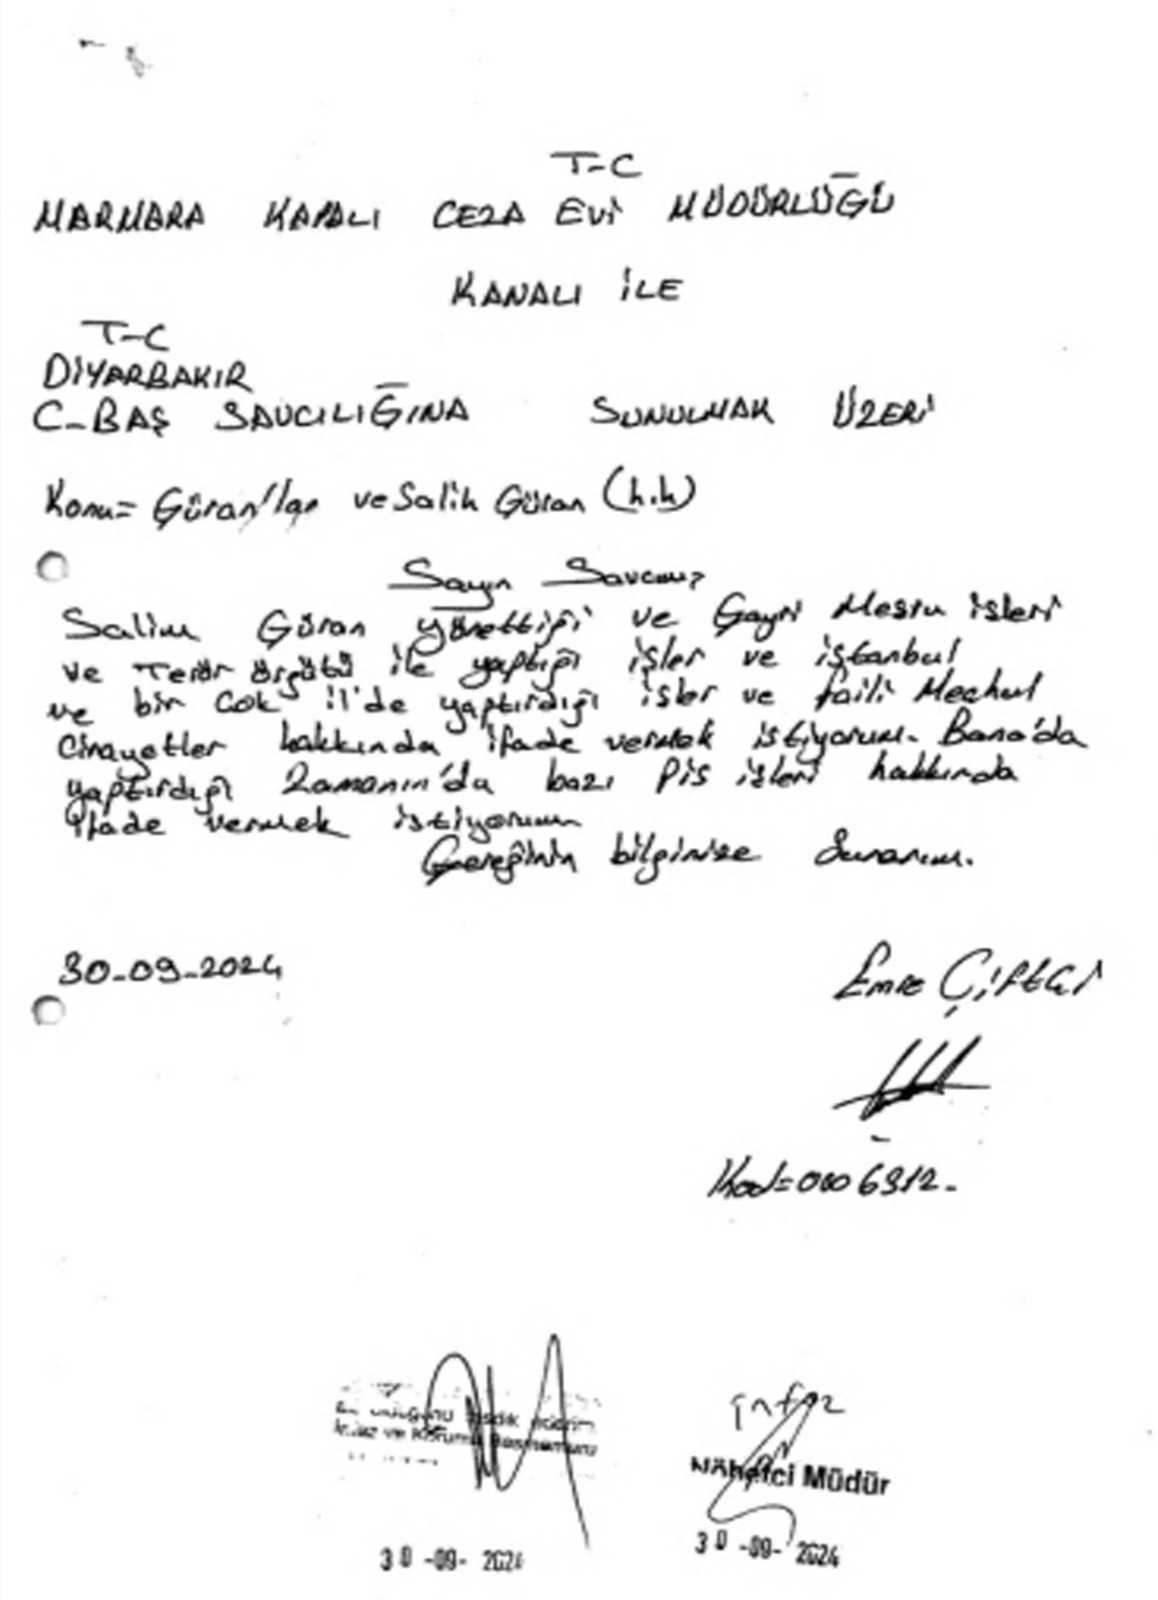 T-C
MARMARA KAPALI CEZA EVİ MÜDÜRLÜĞÜ
KANALI İLE
T-C
DİYARBAKIR
C-BAŞ SAVCILIĞINA SUNULMAK ÜZERİ
Konu= Güran'lar ve Salih Güran (h.k)
Sayın Savcımız
Salim Güran yönettiği ve Gayri Mesru isleri
ve Terör örgütü ile yaptığı işler ve istanbul
ve bir Cok il'de yaptırdığı işler ve faili Mechul
Cinayetler hakkında ifade vermek istiyorum. Bana'da
yaptırdığı Zamanın'da bazı Pis işleri hakkında
ifade vermek istiyorum
Gereğinin bilginize Sunarım.
30-09-2024
Emre Çiftçi
Kod=0006912-
infaz ve Koruma Başmemuru
infaz
Nöbetci Müdür
30-09-2024
30-09-2024